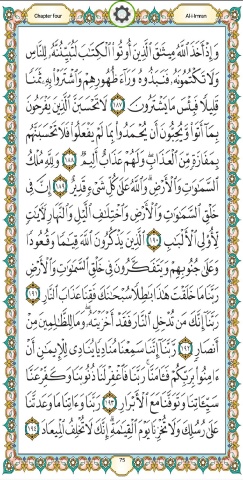 Chapter four
Al-i-Imran
وَإِذْ أَخَذَ ٱللَّهُ مِيثَٰقَ ٱلَّذِينَ أُوتُوا۟ ٱلْكِتَٰبَ لَتُبَيِّنُنَّهُۥ لِلنَّاسِ
وَلَا تَكْتُمُونَهُۥ فَنَبَذُوهُ وَرَآءَ ظُهُورِهِمْ وَٱشْتَرَوْا۟ بِهِۦ ثَمَنًا
قَلِيلًا فَبِئْسَ مَا يَشْتَرُونَ ١٨٧ لَا تَحْسَبَنَّ ٱلَّذِينَ يَفْرَحُونَ
بِمَآ أَتَوا۟ وَّيُحِبُّونَ أَن يُحْمَدُوا۟ بِمَا لَمْ يَفْعَلُوا۟ فَلَا تَحْسَبَنَّهُم
بِمَفَازَةٍ مِّنَ ٱلْعَذَابِ وَلَهُمْ عَذَابٌ أَلِيمٌ ١٨٨ وَلِلَّهِ مُلْكُ
ٱلسَّمَٰوَٰتِ وَٱلْأَرْضِ وَٱللَّهُ عَلَىٰ كُلِّ شَىْءٍ قَدِيرٌ ١٨٩ إِنَّ فِى
خَلْقِ ٱلسَّمَٰوَٰتِ وَٱلْأَرْضِ وَٱخْتِلَٰفِ ٱلَّيْلِ وَٱلنَّهَارِ لَءَايَٰتٍ
لِّأُو۟لِى ٱلْأَلْبَٰبِ ١٩٠ ٱلَّذِينَ يَذْكُرُونَ ٱللَّهَ قِيَٰمًا وَقُعُودًا
وَعَلَىٰ جُنُوبِهِمْ وَيَتَفَكَّرُونَ فِى خَلْقِ ٱلسَّمَٰوَٰتِ وَٱلْأَرْضِ
رَبَّنَا مَا خَلَقْتَ هَٰذَا بَٰطِلًا سُبْحَٰنَكَ فَقِنَا عَذَابَ ٱلنَّارِ ١٩١
رَبَّنَآ إِنَّكَ مَن تُدْخِلِ ٱلنَّارَ فَقَدْ أَخْزَيْتَهُۥ وَمَا لِلظَّٰلِمِينَ مِنْ
أَنصَارٍ ١٩٢ رَّبَّنَآ إِنَّنَا سَمِعْنَا مُنَادِيًا يُنَادِى لِلْإِيمَٰنِ أَنْ
ءَامِنُوا۟ بِرَبِّكُمْ فَـَٔامَنَّا رَبَّنَا فَٱغْفِرْ لَنَا ذُنُوبَنَا وَكَفِّرْ عَنَّا
سَيِّـَٔاتِنَا وَتَوَفَّنَا مَعَ ٱلْأَبْرَارِ ١٩٣ رَبَّنَا وَءَاتِنَا مَا وَعَدتَّنَا
عَلَىٰ رُسُلِكَ وَلَا تُخْزِنَا يَوْمَ ٱلْقِيَٰمَةِ إِنَّكَ لَا تُخْلِفُ ٱلْمِيعَادَ ١٩٤
75